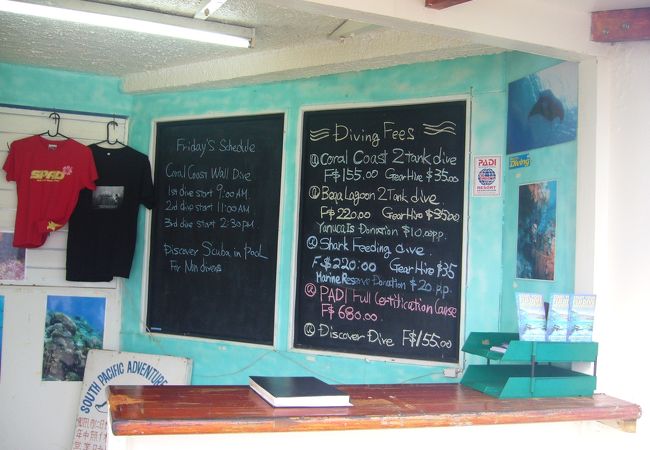 SPAD
Friday's Schedule
Coral Coast Wall Dive
1st dive start 9:00 AM.
2nd dive start 11:00 AM
3rd dive start 2:30 PM.
Discover Scuba in Pool
For Non divers
Diving Fees
Coral Coast 2 tank dive
F$155.00 Gear Hire $35.00
Beqa Lagoon 2 Tank dive.
F$220.00 Gear Hire $35.00
Yanuca Is Donation $10.00pp.
Shark Feeding dive.
F$220:00 Gear Hire $35
Marine Reserve Donation $20.pp.
PADI Full Certification Course
F$680.00
Discover Dive F$155.00
PADI
RESORT
SOUTH PACIFIC ADVENTURE